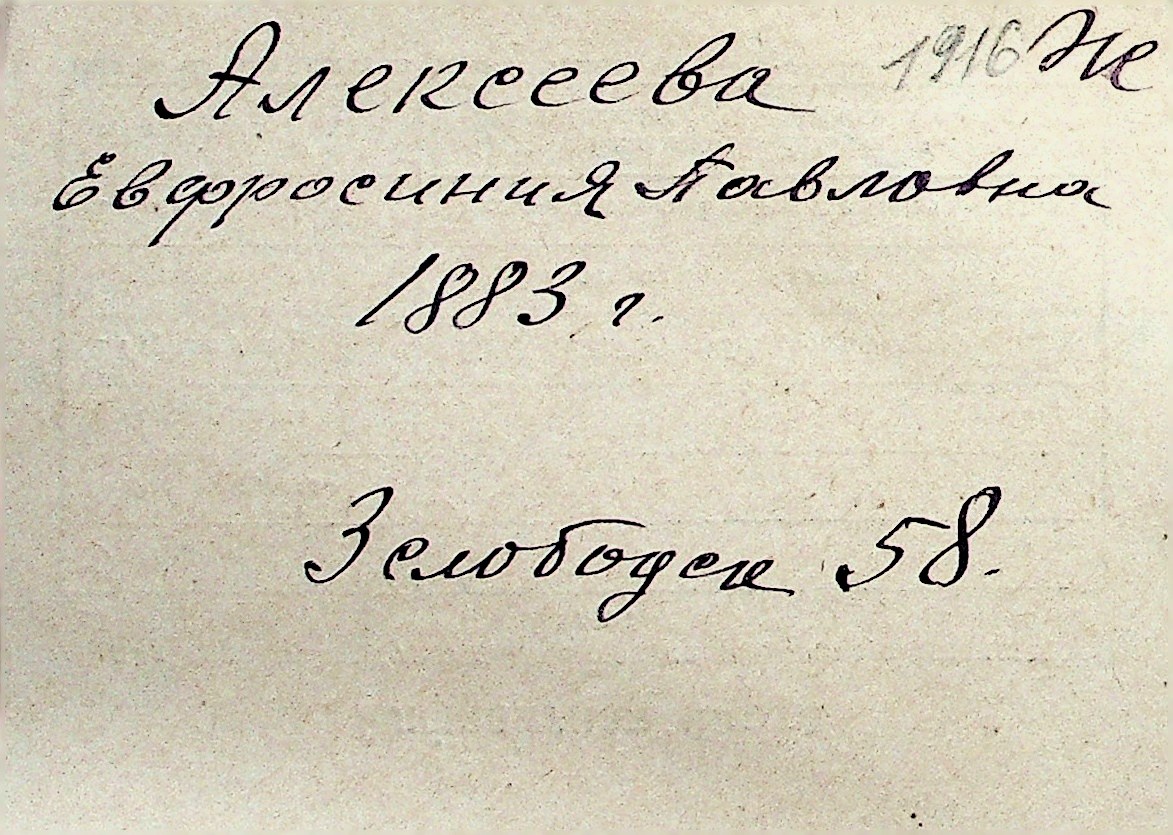 Алексеева 1916 Же
Евфросиния Павловна
1883 г.
3 слободск 58.